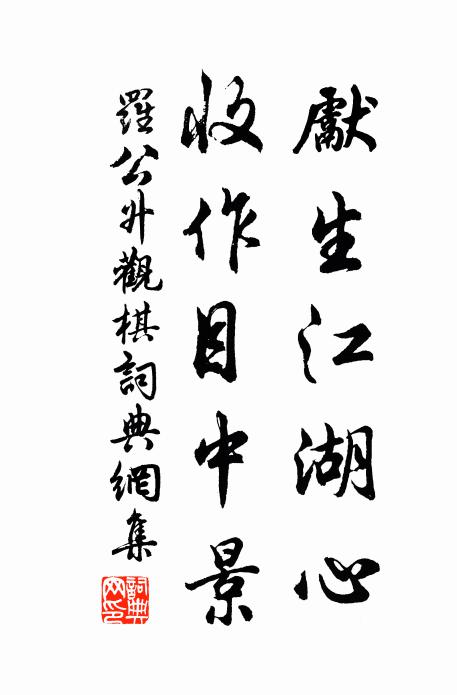 獻生江湖心
收作目中景
羅公升觀棋詞典網集
詞典網印